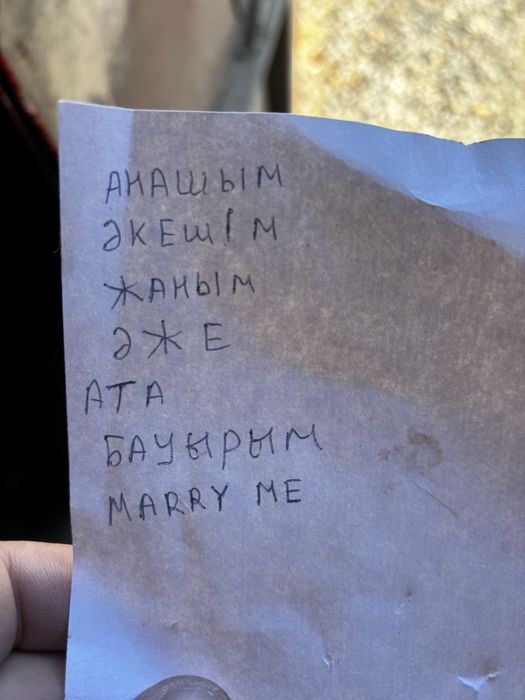 АНАШЫМ
ӘКЕШІМ
ЖАНЫМ
ӘЖЕ
АТА
БАУЫРЫМ
MARRY ME